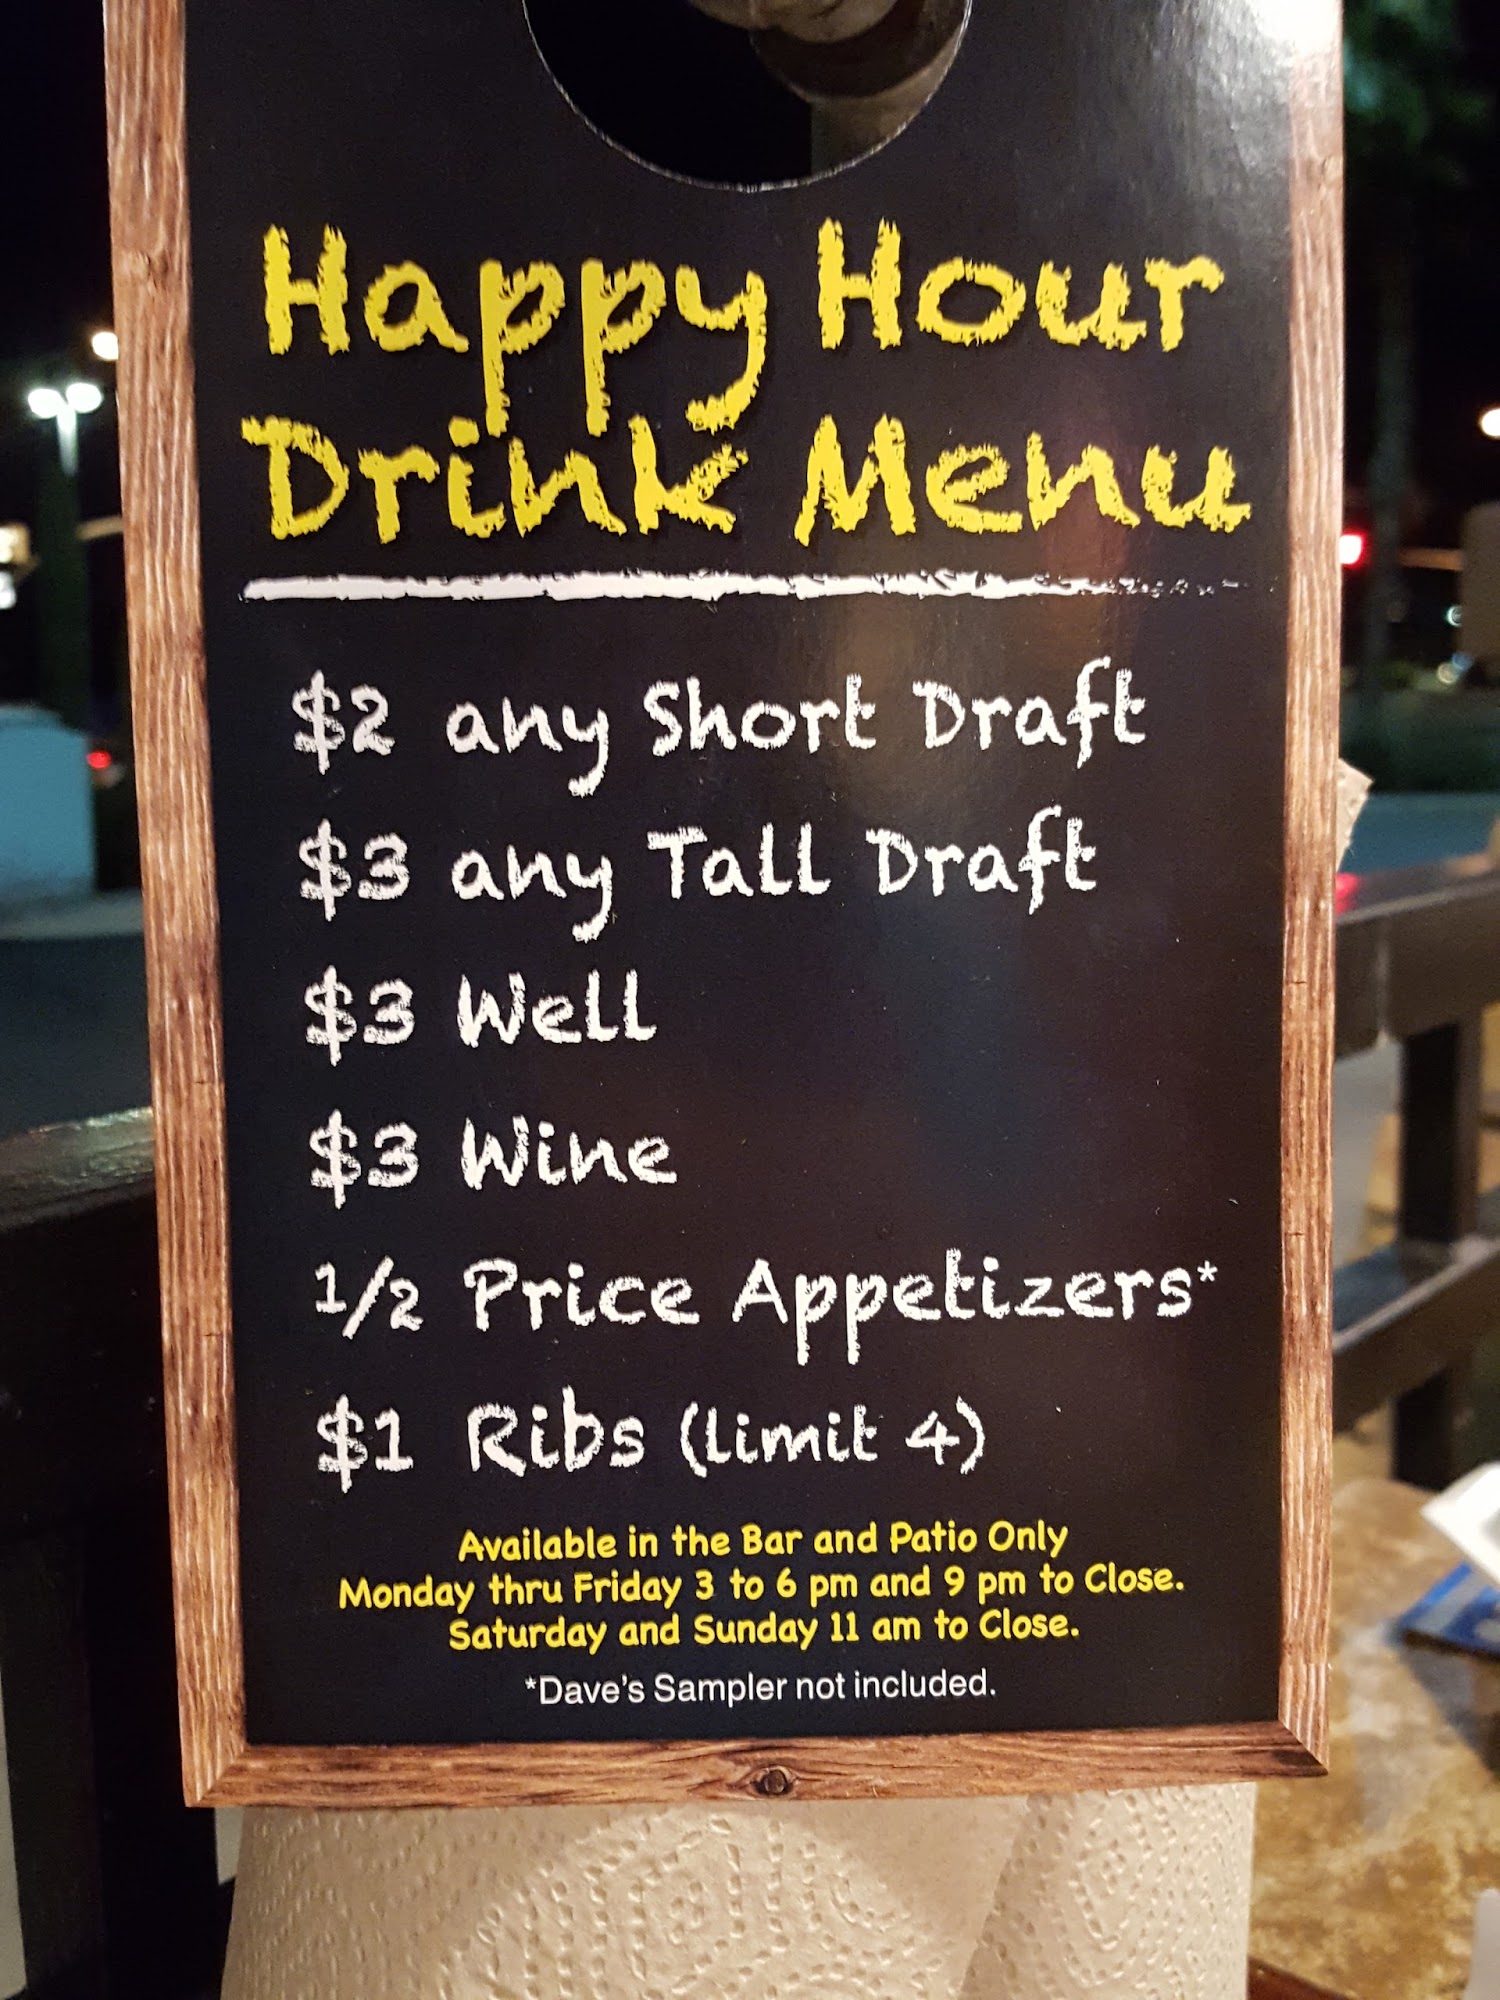 Happy Hour
Drink Menu
$2 any Short Draft
$3 any Tall Draft
$3 Well
$3 Wine
1/2 Price Appetizers*
$1 Ribs (limit 4)
Available in the Bar and Patio Only
Monday thru Friday 3 to 6 pm and 9 pm to Close.
Saturday and Sunday 11 am to Close.
*Dave's Sampler not included.